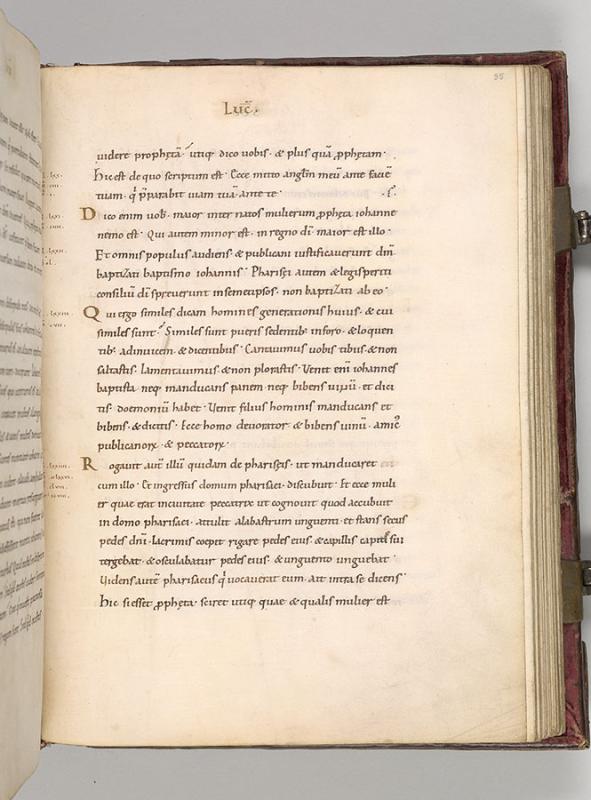 95
Luc̄.
uidere prophetā. utiq; dico uobis. & plus quā ꝓphetam.
hic est de quo scriptum est. Ecce mitto anglm̄ meū ante faciē
tuam. q̄ p̄parabit uiam tuā ante te.
Dico enim uob̄. maior inter natos mulierum ꝓpheta iohanne
nemo est. Qui autem minor est. in regno dī. maior est illo.
Et omnis populus audiens. & publicani iustificauerunt dm̄.
baptizati baptismo iohannis. Pharisęi autem & legisperiti
consiliū dī spreuerunt in semetipsos. non baptizati ab eo.
Qui ergo similes dicam homines generationis huius. & cui
similes sunt. Similes sunt pueris sedentib; in foro. & loquen
tib; adinuicem. & dicentibus. Cantauimus uobis tibiis. & non
saltastis. lamentauimus. & non plorastis. Uenit eni iohannes
baptista neq; manducans panem neq; bibens uinū. et dici
tis. doemoniū habet. Uenit filius hominis manducans et
bibens. & dicitis. Ecce homo deuorator & bibens uinū. amic᾿
publicanoꝝ. & peccatoꝝ.
Rogauit aut̄ illū quidam de phariseis. ut manducaret
cum illo. Et ingressus domum pharisaei. discubuit. Et ecce muli
er quae erat in ciuitate peccatrix ut cognouit quod accubuit
in domo pharisaei. attulit alabastrum unguenti. et stans secus
pedes dnī. lacrimis coepit rigare pedes eius. & capillis capitis sui
tergebat. & osculabatur pedes eius. & unguento unguebat.
Uidens autē pharisaeus q̄ uocauerat eum. ait intra se dicens.
hic si esset ꝓpheta. sciret utiq; quae & qualis mulier est